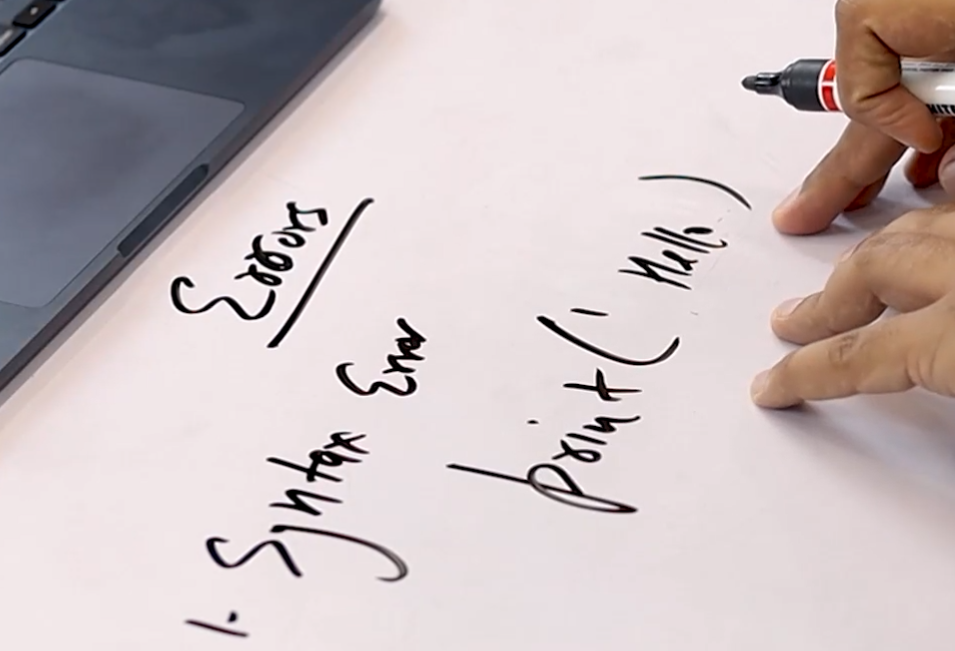 Errors
1. Syntax Error
print(' Hello)